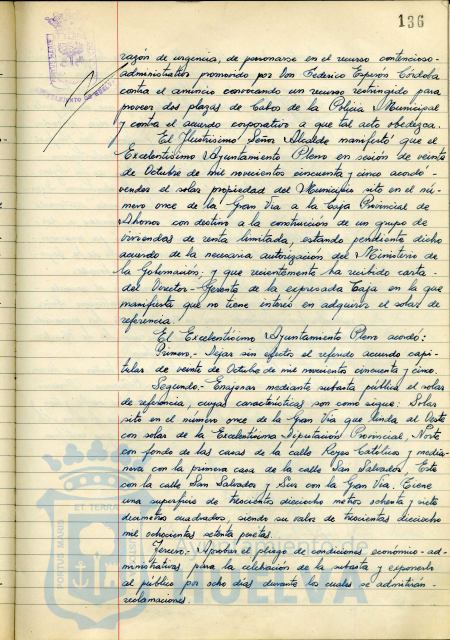 136
razón de urgencia, de personarse en el recurso contencioso-
administrativo promovido por Don Federico Espisón Córdoba
contra el anuncio convocando un concurso restringido para
proveer dos plazas de Cabos de la Policía Municipal
y contra el acuerdo corporativo a que tal acto obedezca.
El Ilustrísimo Señor Alcalde manifestó que el
Excelentísimo Ayuntamiento Pleno en sesión de veinte
de Octubre de mil novecientos cincuenta y cinco acordó
vender el solar propiedad del Municipio sito en el nú-
mero once de la Gran Vía a la Caja Provincial de
Ahorros con destino a la construcción de un grupo de
viviendas de renta limitada, estando pendiente dicho
acuerdo de la necesaria autorización del Ministerio de
la Gobernación; y que recientemente ha recibido carta
del Director-Gerente de la expresada Caja en la que
manifiesta que no tiene interés en adquirir el solar de
referencia.
El Excelentísimo Ayuntamiento Pleno acordó:
Primero.- Dejar sin efectos el referido acuerdo capi-
tular de veinte de Octubre de mil novecientos cincuenta y cinco.
Segundo.- Enajenar mediante subasta pública el solar
de referencia, cuyas características son como sigue: Solar
sito en el número once de la Gran Vía que linda al Oeste
con solar de la Excelentísima Diputación Provincial, Norte
con fondo de las casas de la calle Reyes Católicos y media-
nera con la primera casa de la calle San Salvador, Este
con la calle San Salvador y Sur con la Gran Vía. Tiene
una superficie de trescientos dieciocho metros ochenta y siete
decímetros cuadrados, siendo su valor de trescientas dieciocho
mil ochocientas setenta pesetas.
Tercero.- Aprobar el pliego de condiciones económico-ad-
ministrativas para la celebración de la subasta y exponerlo
al público por ocho días durante los cuales se admitirán
reclamaciones.
PORTUS MARIS
ET TERRAE
Ayuntamiento de
HUELVA